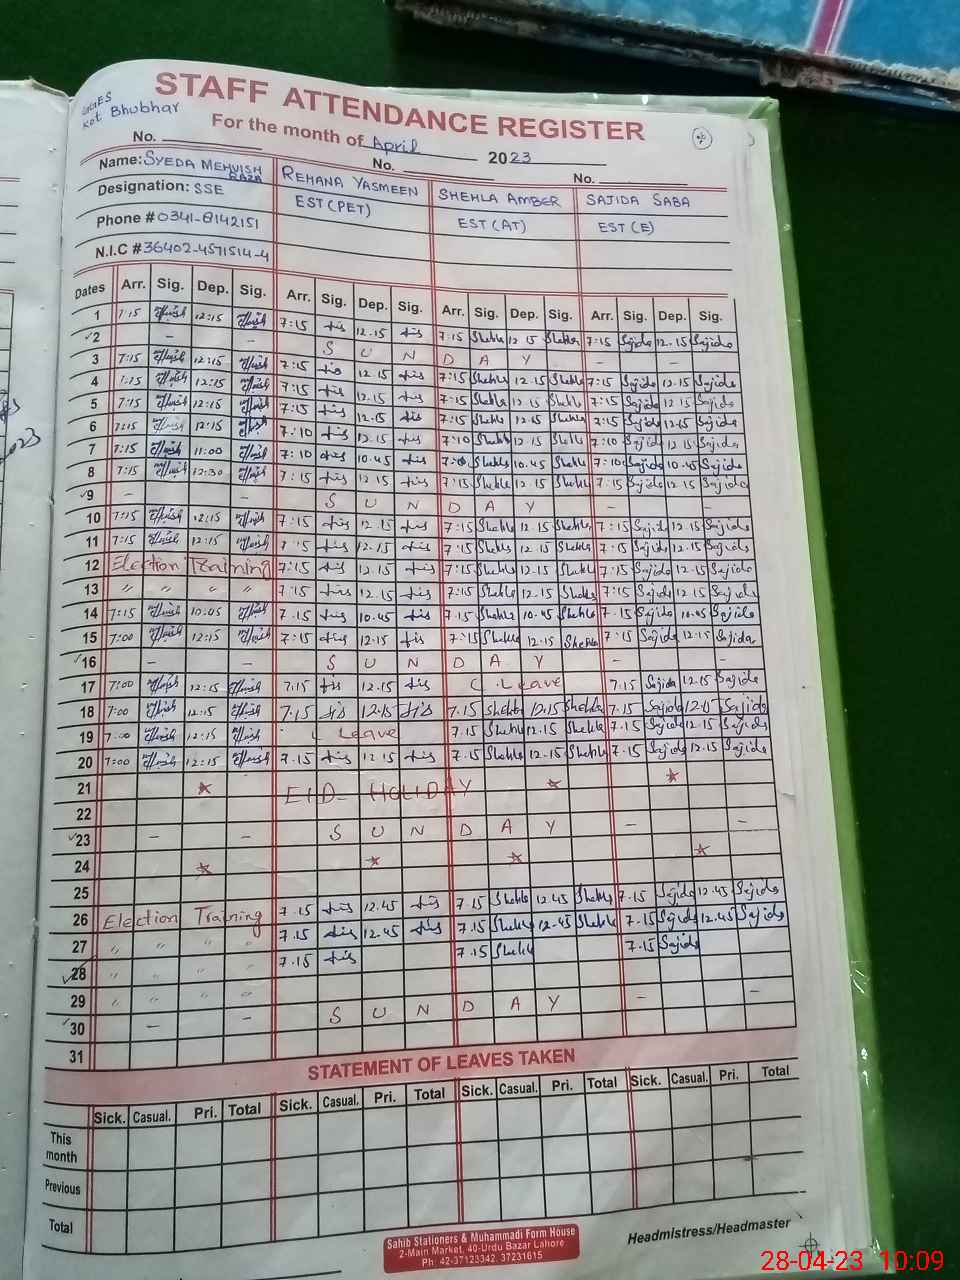 GGES
Kot Bhubhar
STAFF ATTENDANCE REGISTER
For the month of April 2023
No. No. No.
Name: SYEDA MEHVISH RAZA REHANA YASMEEN SHEHLA AMBER SAJIDA SABA
Designation: SSE EST (PET) EST (AT) EST (E)
Phone # 0341-8142151
N.I.C # 36402-4571514-4
Dates Arr. Sig. Dep. Sig. Arr. Sig. Dep. Sig. Arr. Sig. Dep. Sig. Arr. Sig. Dep. Sig.
1 7:15 12:15 7:15 12.15 7:15 Shehla 12 15 Shehla 7:15 Sajida 12.15 Sajida
2 - - S U N D A Y - -
3 7:15 12:15 7:15 12.15 7:15 Shehla 12.15 Shehla 7:15 Sajida 12.15 Sajida
4 7:15 12:15 7:15 12.15 7:15 Shehla 12.15 Shehla 7:15 Sajida 12 15 Sajida
5 7:15 12:15 7:15 12.15 7:15 Shehla 12.15 Shehla 7:15 Sajida 12.15 Sajida
6 7:15 12:15 7:10 12.15 7:10 Shehla 12 15 Shehla 7:10 Sajida 12 15 Sajida
7 7:15 11:00 7:10 10.45 7:10 Shehla 10.45 Shehla 7:10 Sajida 10.45 Sajida
8 7:15 12:30 7:15 12.15 7:15 Shehla 12.15 Shehla 7:15 Sajida 12.15 Sajida
9 - - S U N D A Y - -
10 7:15 12:15 7:15 12.15 7:15 Shehla 12 15 Shehla 7:15 Sajida 12.15 Sajida
11 7:15 12:15 7:15 12.15 7:15 Shehla 12.15 Shehla 7:15 Sajida 12.15 Sajida
12 Election Training 7:15 12.15 7:15 Shehla 12.15 Shehla 7:15 Sajida 12.15 Sajida
13 " " " " 7:15 12.15 7:15 Shehla 12.15 Shehla 7:15 Sajida 12.15 Sajida
14 7:15 10.05 7.15 10.45 7.15 Shehla 10.45 Shehla 7.15 Sajida 10.45 Sajida
15 7:00 12:15 7:15 12.15 7:15 Shehla 12.15 Shehla 7:15 Sajida 12.15 Sajida
16 - - S U N D A Y - -
17 7:00 12:15 7.15 12.15 C. Leave 7.15 Sajida 12.15 Sajida
18 7:00 12:15 7.15 12.15 7.15 Shehla 12.15 Shehla 7.15 Sajida 12.15 Sajida
19 7:00 12:15 C Leave 7.15 Shehla 12.15 Shehla 7.15 Sajida 12.15 Sajida
20 7:00 12:15 7.15 12.15 7.15 Shehla 12.15 Shehla 7.15 Sajida 12.15 Sajida
21 EID - HOLIDAY
22
23 - - S U N D A Y - -
24
25
26 Election Training 7.15 12.45 7.15 Shehla 12.45 Shehla 7.15 Sajida 12.45 Sajida
27 " " " " 7.15 12.45 7.15 Shehla 12.45 Shehla 7.15 Sajida 12.45 Sajida
28 " " " " 7.15 7.15 Shehla 7.15 Sajida
29 " " " "
30 - - S U N D A Y - -
31
STATEMENT OF LEAVES TAKEN
Sick. Casual. Pri. Total Sick. Casual. Pri. Total Sick. Casual. Pri. Total Sick. Casual. Pri. Total
This month
Previous
Total
Sahib Stationers & Muhammadi Form House
2-Main Market, 40-Urdu Bazar Lahore
Ph: 42-37123342, 37231615
Headmistress/Headmaster
28-04-23 10:09